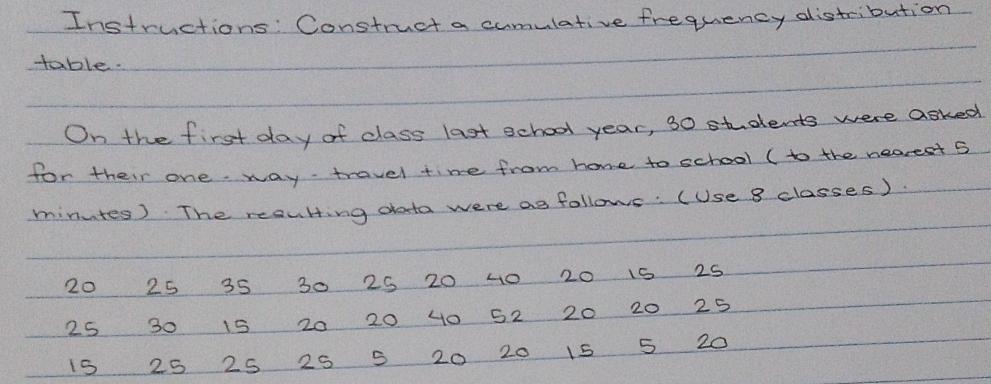 Instructions: Construct a cumulative frequency distribution
table.
On the first day of class last school year, 30 students were asked
for their one-way-travel time from home to school (to the nearest 5
minutes). The resulting data were as follows: (Use 8 classes).
20 25 35 30 25 20 40 20 15 25
25 30 15 20 20 40 52 20 20 25
15 25 25 25 5 20 20 15 5 20